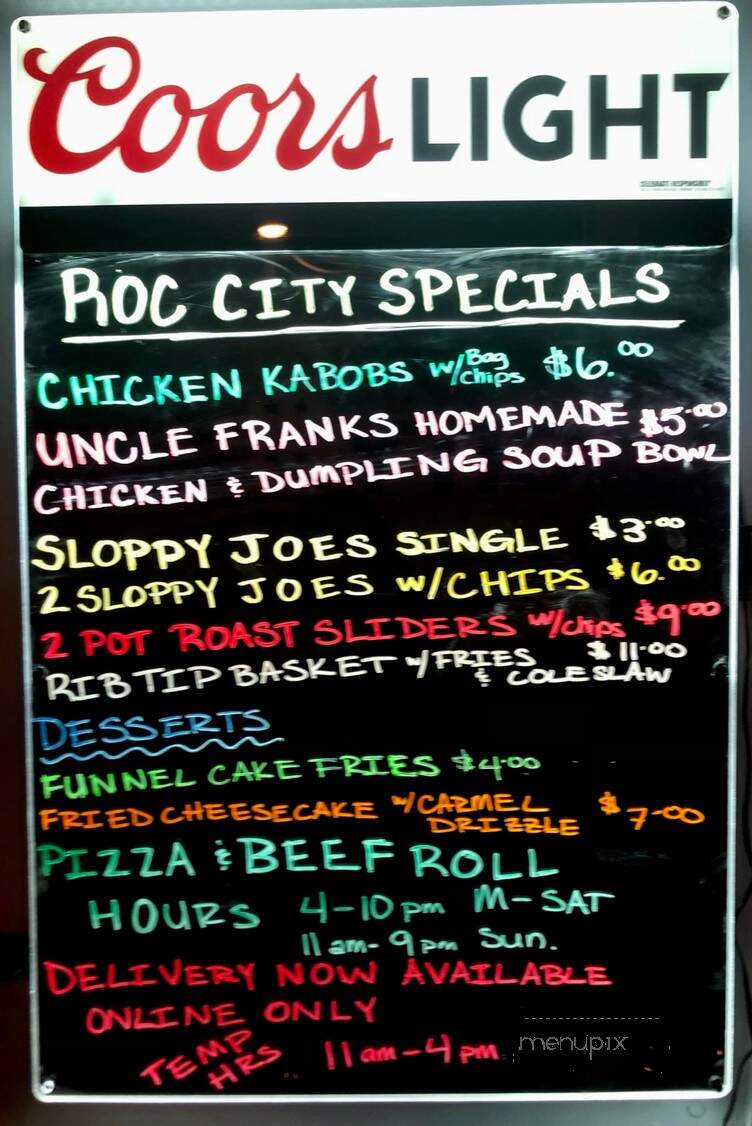 Coors LIGHT
ROC CITY SPECIALS
CHICKEN KABOBS w/Bag Chips $6.00
UNCLE FRANKS HOMEMADE $5.00
CHICKEN & DUMPLING SOUP BOWL
SLOPPY JOES SINGLE $3.00
2 SLOPPY JOES w/CHIPS $6.00
2 POT ROAST SLIDERS w/chips $9.00
RIB TIP BASKET w/FRIES $11.00
& COLESLAW
DESSERTS
FUNNEL CAKE FRIES $4.00
FRIED CHEESECAKE w/CARMEL $7.00
DRIZZLE
PIZZA & BEEF ROLL
HOURS 4-10 pm M-SAT
11am-9pm Sun.
DELIVERY NOW AVAILABLE
ONLINE ONLY
TEMP HRS 11am-4pm
menupix